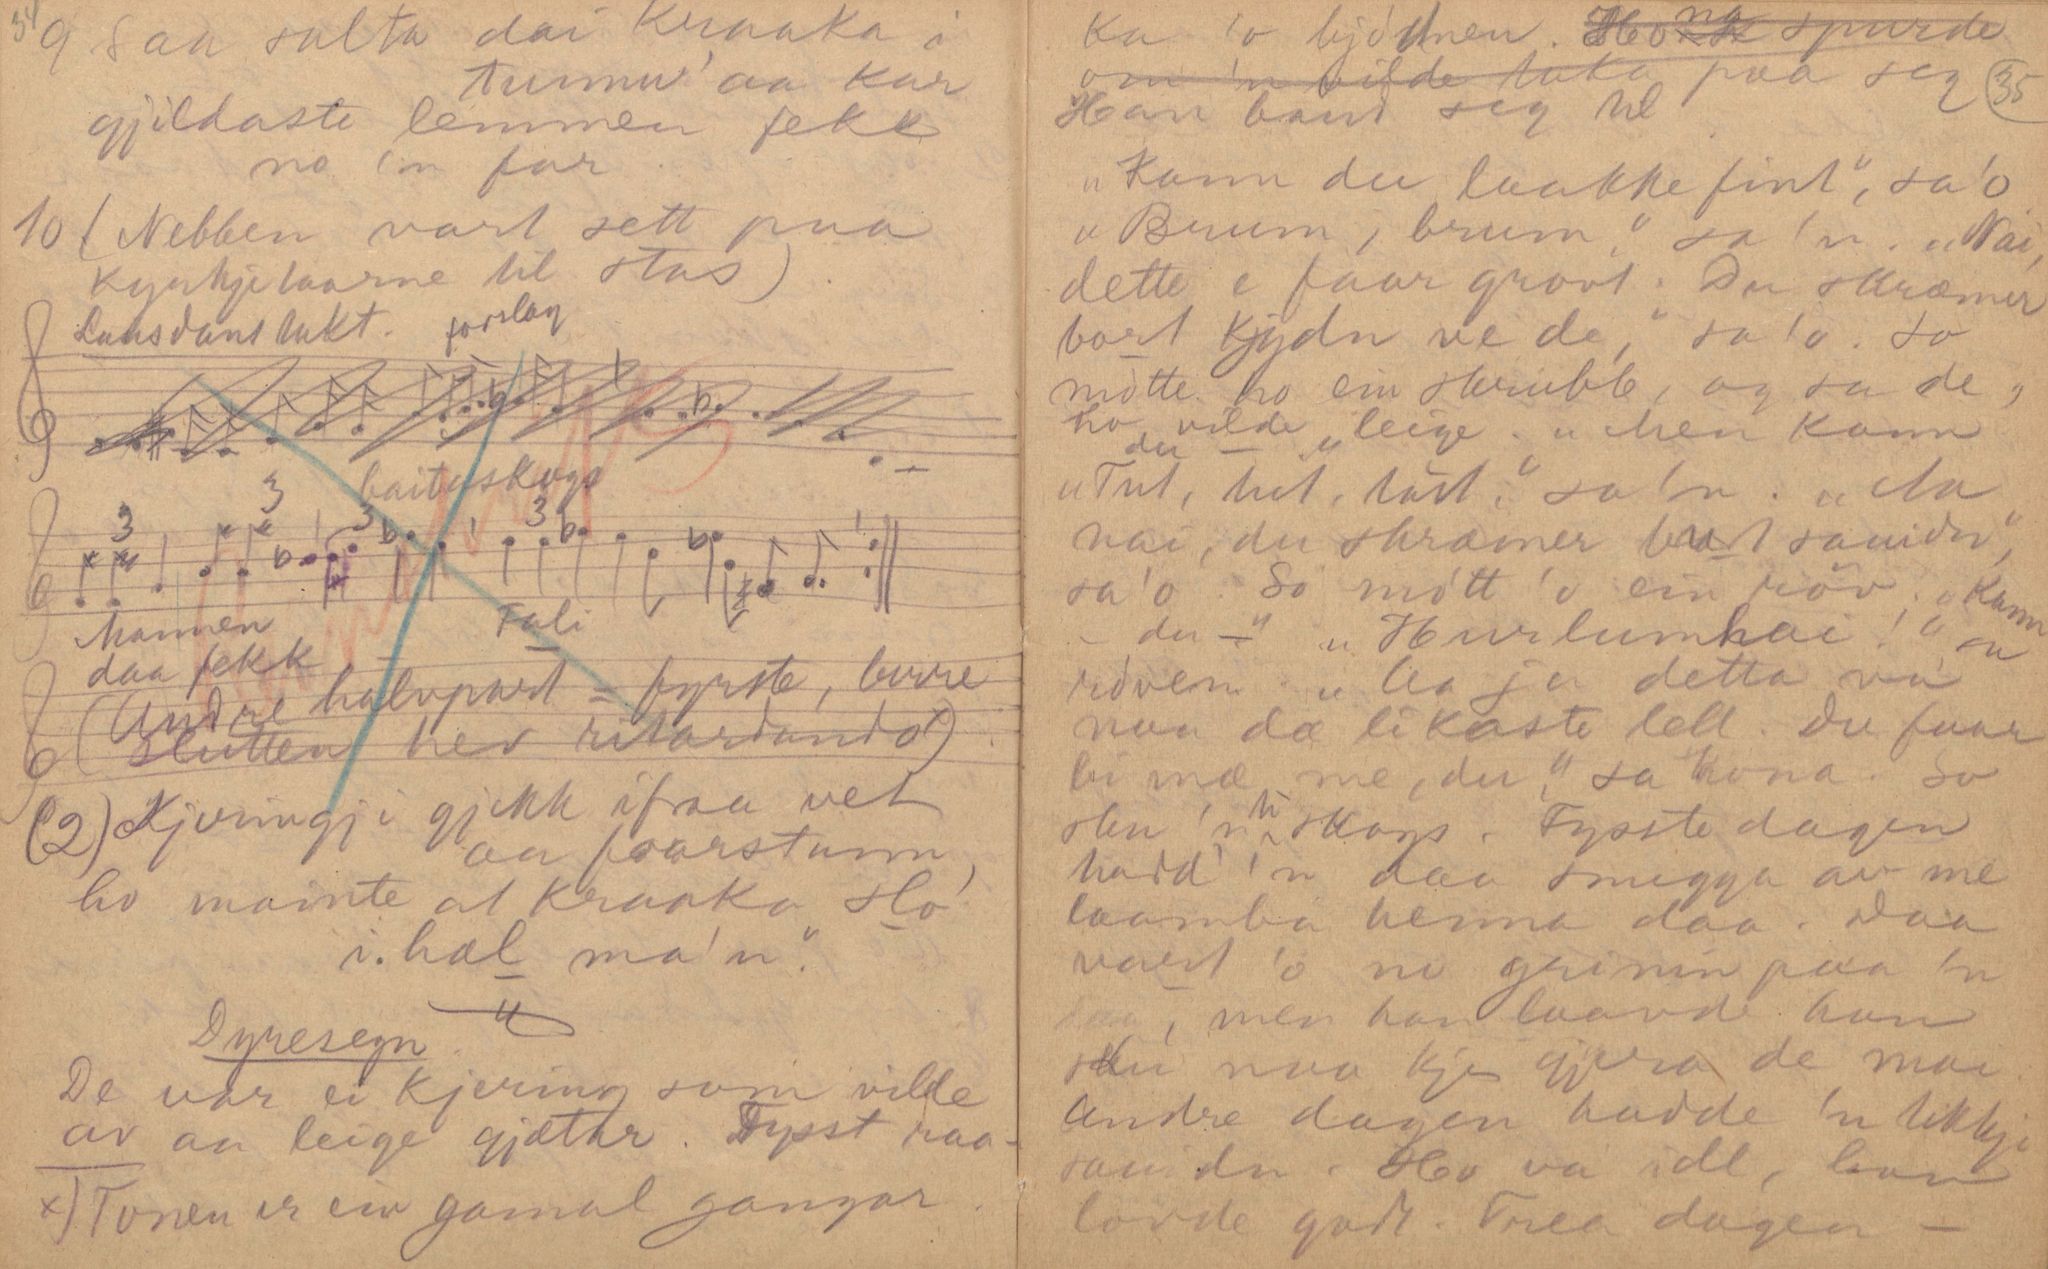 34
9 Saa salta dai Kraaka i
tunnu' aa kar
gjildaste lemmen fekk
no 'n far.
10 (Nebben vart sett paa
kyrkjetaarne til stas).
Lausdanstakt. forslag
baitaskogs
3 3 3 3
Mannen Fali
daa fekk
(Andre halvpart = fyrste, berre
slutten hev ritardando)
(2) Kjeringji gjekk ifraa vet
aa forstann,
ho mainte at Kraaka slo'
i. hæl ma'n."
Dyresegn
De var ei kjering som vilde
av aa leige gjætar. Fysst raa-
x) Tonen er ein gamal gangar.
ka 'o bjødnen. Ho spurde
om 'n vilde taka paa seg
35
Han baud seg til
"Kann du laakke fint", sa'o
"Brum, brum," sa 'n. "Nai,
dette e faar grovt. Du skræmer
bort kjydn ve de," sa 'o. So
møtte ho ein skrubb, og sa de,
ho vilde leige. "Men kann
du —"
"Tut, tut, tut," sa 'n. "Aa
nai, du skræmer bort sauidn",
sa'o. So møtt 'o ein røv. "Kann
- du —" "Hurlumhai!" sa
røven. "Aa ja detta va
naa dæ likaste lell. Du faar
bi mæ me, du," sa kona. So
sku 'n ti skogs. Fysste dagen
hadd 'n daa smugga av me
laamba henna daa. Daa
vart 'o no grinin paa 'n
, men han laavde han
sku naa kje gjera de mai
Andre dagen hadde 'n tikkji
sauidn. Ho va idl, han
lovde godt. Trea dagen —